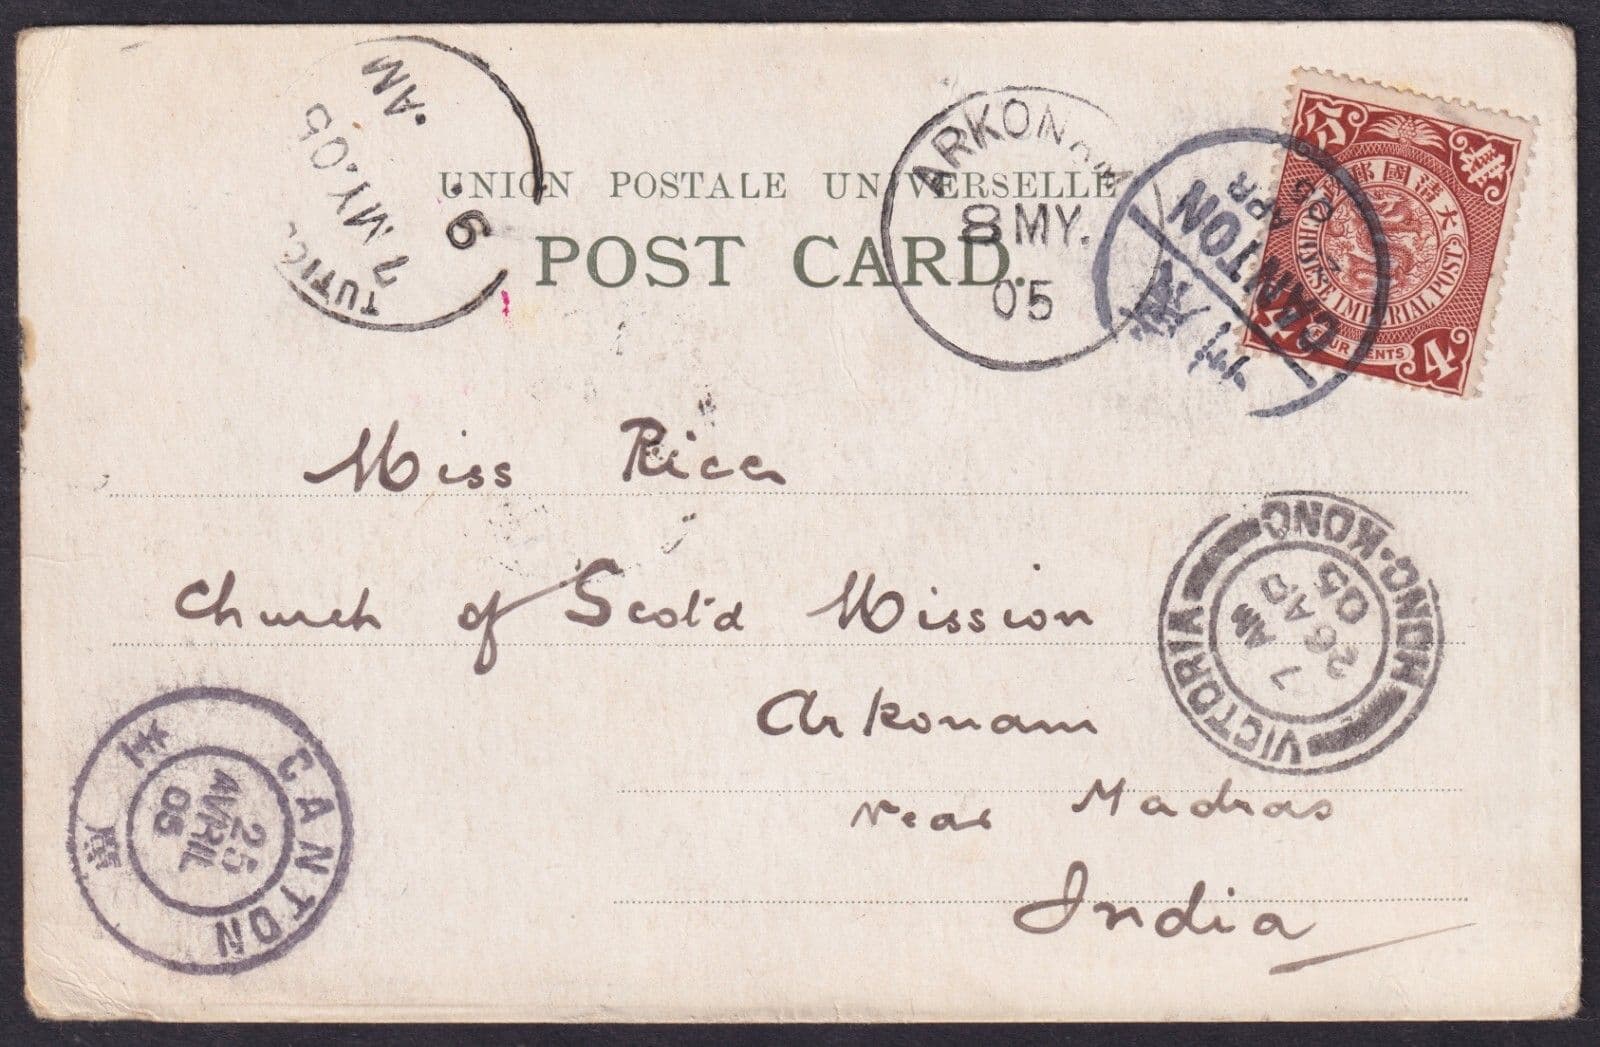 UNION POSTALE UNIVERSELLE
POST CARD.
TUTIC
7 MY.05
.AM
.6
ARKONAM
8 MY.
05
CANTON
APR
05
大清國郵政
CHINESE IMPERIAL POST
FOUR CENTS
4
Miss Rice
Church of Scot'd Mission
Arkonam
near Madras
India
VICTORIA
HONG-KONG
7 AM
26 AP
05
CANTON
25
AVRIL
05